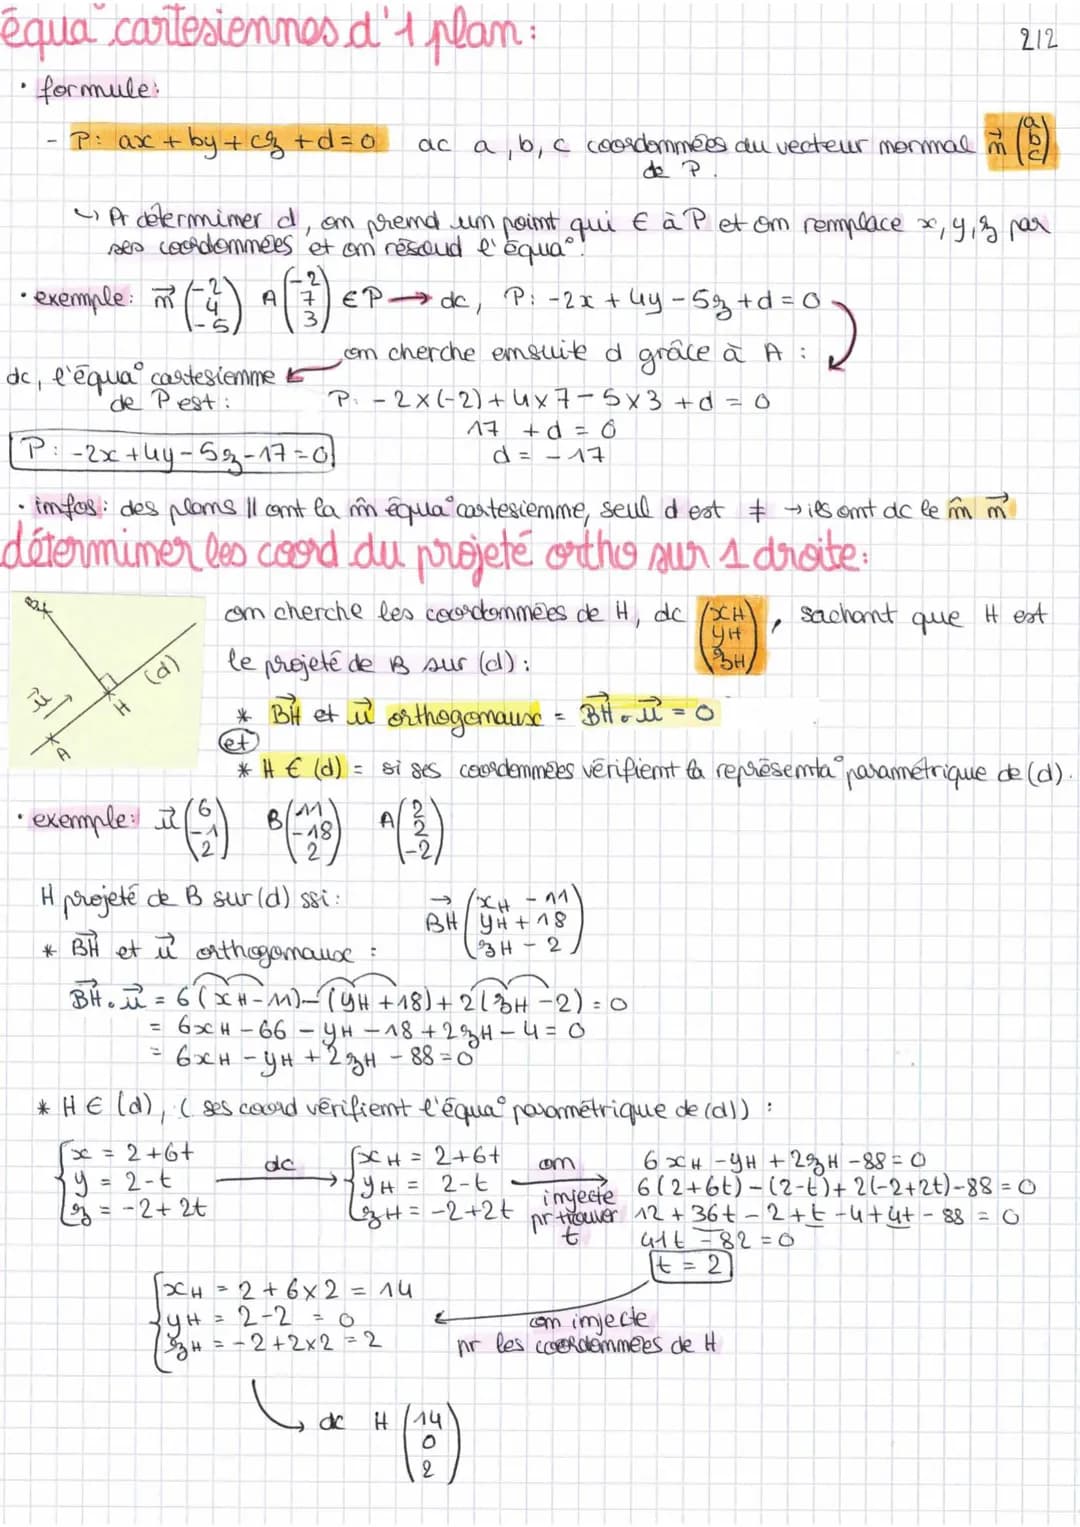 équa° cartesiennes d'1 plan :
2/2
• formule :
- P: ax + by + cz + d = 0 ac a, b, c coordonnées du vecteur normal n⃗ (a b c)
de P.
↳ Pr déterminer d, on prend un point qui ∈ à P et on remplace x, y, z par
ses coordonnées et on résoud l'équa°.
• exemple : n⃗ (-2 4 -5) A (-2 7 3) ∈ P → dc, P: -2x + 4y - 5z + d = 0
on cherche ensuite d grâce à A :
dc, l'équa° cartesienne
de P est :
P: -2×(-2) + 4×7 - 5×3 + d = 0
17 + d = 0
P: -2x + 4y - 5z - 17 = 0
d = -17
• infos : des plans // ont la m̂ équa° cartesienne, seul d est ≠ → ils ont dc le m̂ n⃗
déterminer les coord du projeté ortho sur 1 droite :
B
(d)
u⃗
H
A
on cherche les coordonnées de H, dc (xH yH zH), sachant que H est
le projeté de B sur (d) :
* BH⃗ et u⃗ orthogonaux = BH⃗ . u⃗ = 0
et
* H ∈ (d) = si ses coordonnées vérifient la représenta° paramétrique de (d).
• exemple : u⃗ (6 -1 2) B (11 -18 2) A (2 2 -2)
H projeté de B sur (d) ssi :
BH⃗ (xH - 11 yH + 18 zH - 2)
* BH⃗ et u⃗ orthogonaux :
BH⃗ . u⃗ = 6(xH - 11) - (yH + 18) + 2(zH - 2) = 0
= 6xH - 66 - yH - 18 + 2zH - 4 = 0
= 6xH - yH + 2zH - 88 = 0
* H ∈ (d), (ses coord vérifient l'équa° paramétrique de (d)) :
{x = 2 + 6t
y = 2 - t
z = -2 + 2t
dc
{xH = 2 + 6t
yH = 2 - t
zH = -2 + 2t
on
injecte
pr trouver
t
6xH - yH + 2zH - 88 = 0
6(2 + 6t) - (2 - t) + 2(-2 + 2t) - 88 = 0
12 + 36t - 2 + t - 4 + 4t - 88 = 0
41t - 82 = 0
t = 2
{xH = 2 + 6×2 = 14
yH = 2 - 2 = 0
zH = -2 + 2×2 = 2
on injecte
pr les coordonnées de H
dc H (14 0 2)